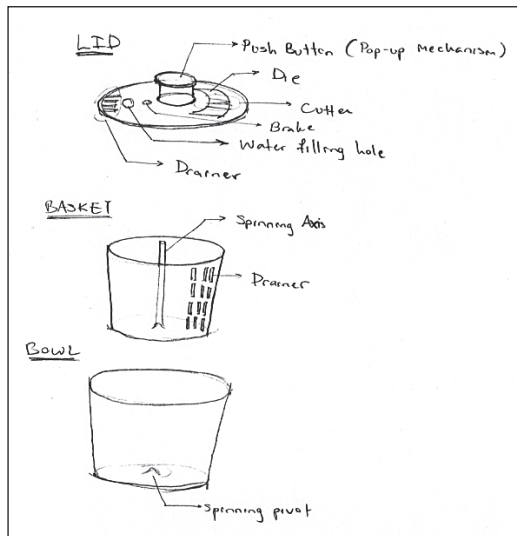 LID
Push Button (Pop-up Mechanism)
Die
Cutter
Brake
Water filling hole
Drainer
BASKET
Spinning Axis
Drainer
BOWL
Spinning pivot